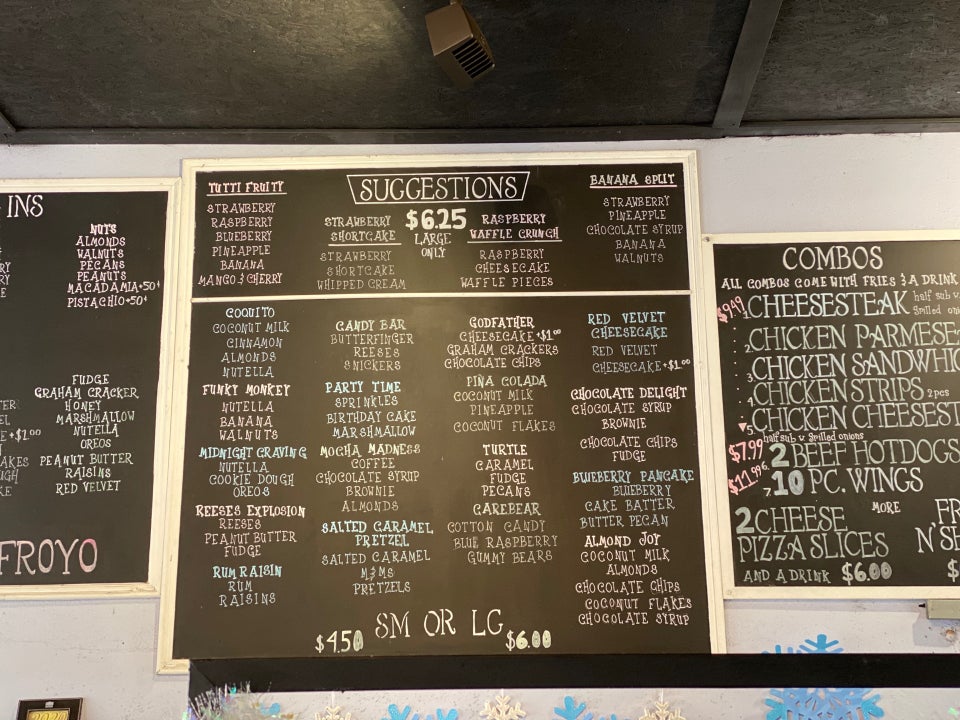 INS
NUTS
ALMONDS
WALNUTS
PECANS
PEANUTS
MACADAMIA+50¢
PISTACHIO+50¢
FUDGE
GRAHAM CRACKER
HONEY
MARSHMALLOW
NUTELLA
OREOS
+$1.00
PEANUT BUTTER
RAISINS
RED VELVET
FROYO
SUGGESTIONS
$6.25
LARGE
ONLY
TUTTI FRUITY
STRAWBERRY
RASPBERRY
BLUEBERRY
PINEAPPLE
BANANA
MANGO & CHERRY
STRAWBERRY
SHORTCAKE
STRAWBERRY
SHORTCAKE
WHIPPED CREAM
RASPBERRY
WAFFLE CRUNCH
RASPBERRY
CHEESECAKE
WAFFLE PIECES
BANANA SPLIT
STRAWBERRY
PINEAPPLE
CHOCOLATE SYRUP
BANANA
WALNUTS
COQUITO
COCONUT MILK
CINNAMON
ALMONDS
NUTELLA
FUNKY MONKEY
NUTELLA
BANANA
WALNUTS
MIDNIGHT CRAVING
NUTELLA
COOKIE DOUGH
OREOS
REESES EXPLOSION
REESES
PEANUT BUTTER
FUDGE
RUM RAISIN
RUM
RAISINS
CANDY BAR
BUTTERFINGER
REESES
SNICKERS
PARTY TIME
SPRINKLES
BIRTHDAY CAKE
MARSHMALLOW
MOCHA MADNESS
COFFEE
CHOCOLATE SYRUP
BROWNIE
ALMONDS
SALTED CARAMEL
PRETZEL
SALTED CARAMEL
M&MS
PRETZELS
GODFATHER
CHEESECAKE+$1.00
GRAHAM CRACKERS
CHOCOLATE CHIPS
PIÑA COLADA
COCONUT MILK
PINEAPPLE
COCONUT FLAKES
TURTLE
CARAMEL
FUDGE
PECANS
CAREBEAR
COTTON CANDY
BLUE RASPBERRY
GUMMY BEARS
RED VELVET
CHEESECAKE
RED VELVET
CHEESECAKE+$1.00
CHOCOLATE DELIGHT
CHOCOLATE SYRUP
BROWNIE
CHOCOLATE CHIPS
FUDGE
BLUEBERRY PANCAKE
BLUEBERRY
CAKE BATTER
BUTTER PECAN
ALMOND JOY
COCONUT MILK
ALMONDS
CHOCOLATE CHIPS
COCONUT FLAKES
CHOCOLATE SYRUP
$4.50 SM OR LG $6.00
COMBOS
ALL COMBOS COME WITH FRIES & A DRINK
$9.49 1. CHEESESTEAK half sub w.
grilled on
2. CHICKEN PARMESE
3. CHICKEN SANDWIC
4. CHICKEN STRIPS 2 pcs
5. CHICKEN CHEESEST
half sub w. grilled onions
$7.99 2 BEEF HOTDOGS
$11.99 6.
7. 10 PC. WINGS
2 CHEESE MORE FR
PIZZA SLICES N'SH
AND A DRINK $6.00 $